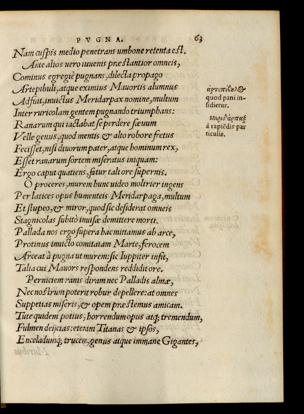 PVGNA. 63
Nam cuspis medio penetrans umbone retenta est.
Ante alios vero iuuenis præstantior omneis,
Cominus egregiè pugnans, dilecta propago
Artepibuli, atque eximius Mauortis alumnus
Adfuit, inuictus Meridarpax nomine, multum
Inter ruricolam gentem pugnando triumphans:
Ranarum qui iactabat se perdere sæuum
Velle genus, quod mentis & alto robore fretus
Fecisset, nisi diuorum pater, atque hominum rex,
Esset ranarum sortem miseratus iniquam:
Ergo caput quatiens, fatur tali ore supernis.
O proceres, murem hunc uideo moltrier ingens
Per latices opus humenteis Meridarpaga, multum
Et stupeo, & miror, quod sic desiderat omneis
Stagnicolas subitò inuisæ demittere morti.
Pallada nos ergo supera hac mittamus ab arce,
Protinus inuicto comitatam Marte, ferocem
Arceat à pugna ut murem: sic Iuppiter infit,
Talia cui Mauors respondens reddidit ore.
Perniciem ranis diram nec Palladis almæ,
Nec nostrùm poterit robur depellere: at omnes
Suppetias miseris, & opem præstemus amicam.
Tute quidem potius, horrendum opus atq; tremendum,
Fulmen deijcias: eteram Titanas & ipsos,
Enceladumq; trucem, genus atque immane Gigantes,
quod pani insidietur.
à rapiēdis particulis.